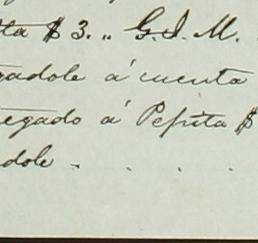 ta $ 3. „ G. I. M.
gadole á cuenta
regado á Pepita $
dole . . . .